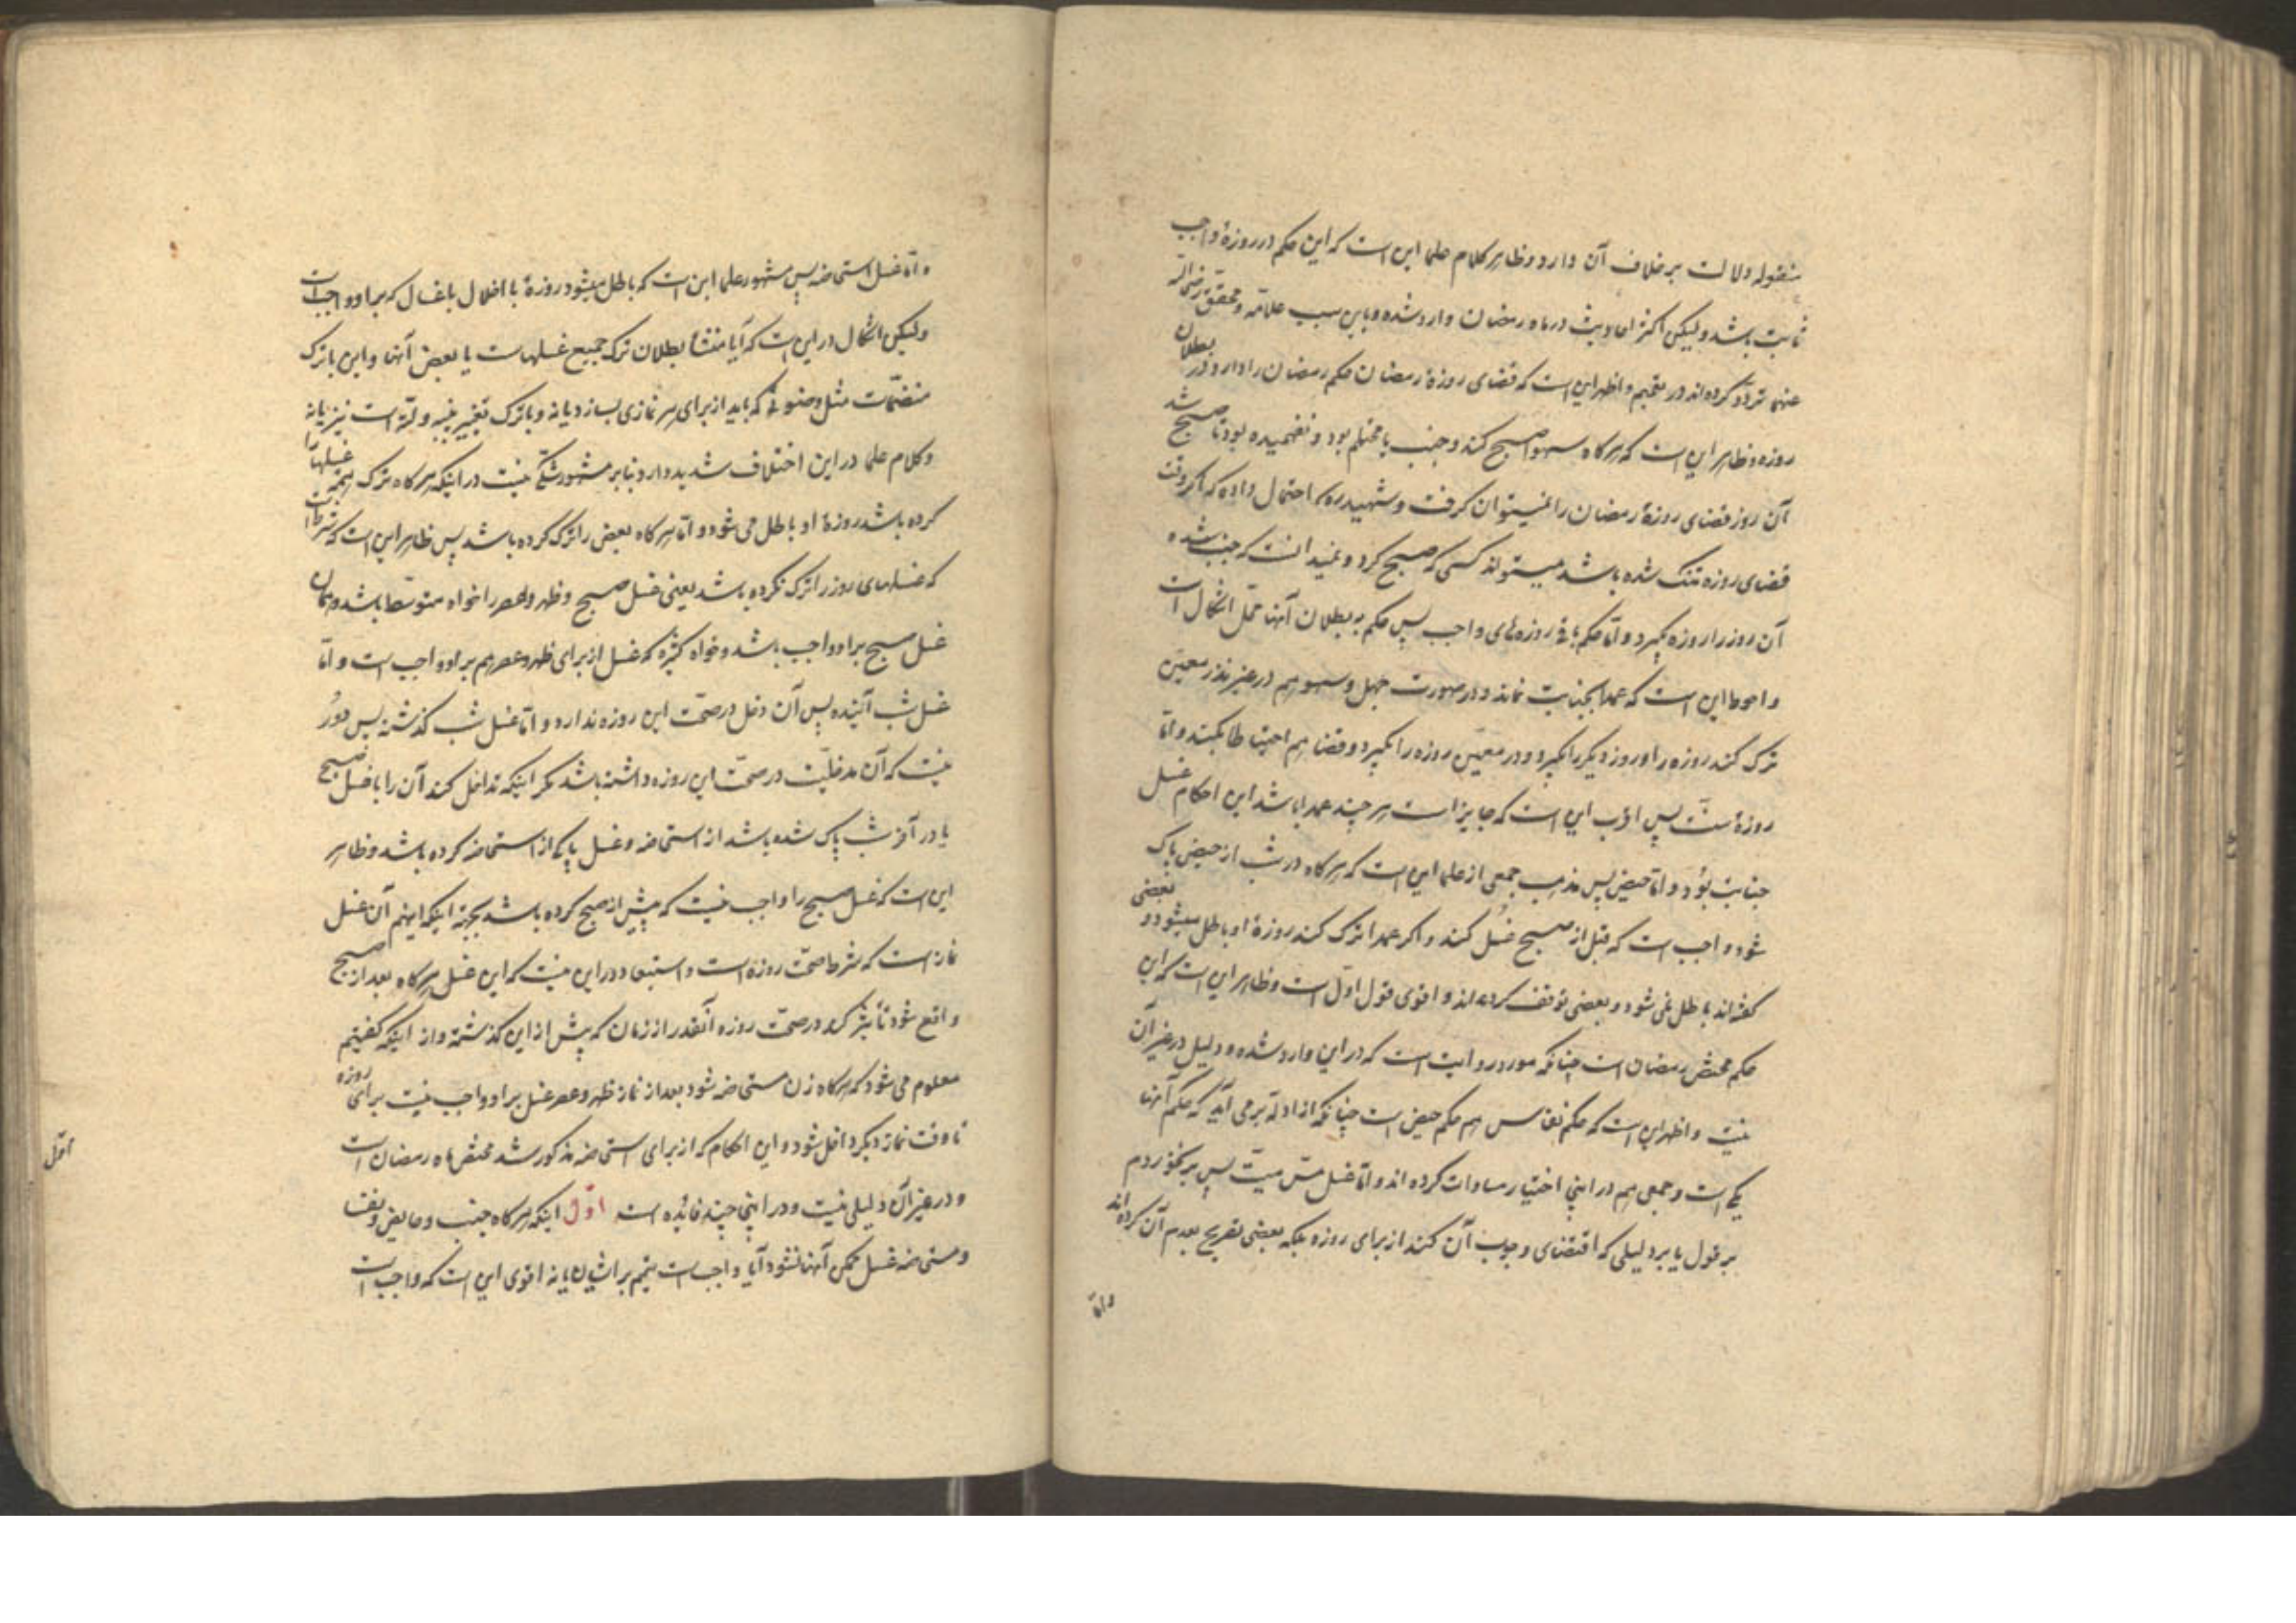 منقوله دلالت بر خلاف آن دارد و ظاهر کلام علما این است که این حکم در روزهٔ واجب
ثابت باشد و لیکن اکثر احادیث در ماه رمضان وارد شده و باین سبب علامه و محقق رضی الله
عنهما تردد کرده‌اند در تعمیم و اظهر این است که قضای روزهٔ رمضان حکم رمضان را دارد و در بطلان
روزه و ظاهر این است که هرگاه سهوا صبح کند و جنب یا محتلم بود و نفهمیده بود تا صبح شد
آن روز قضای روزهٔ رمضان را نمیتوان گرفت و شهید ره احتمال داده که اگر وقت
قضای روزه تنگ شده باشد میتواند کسی که صبح کرد و نمیدانست که جنب شده
آن روز را روزه بگیرد و اما حکم باقی روزه‌های واجب پس حکم به بطلان آنها محل اشکال است
و احوط این است که عمدا بجنابت نماند و در صورت جهل و سهو هم در غیر نذر معین
ترک کند روزه را و روز دیگر را بگیرد و در معین روزه را بگیرد و قضا هم احتیاطا بکند و اما
روزهٔ سنت پس اقرب این است که جایز است هر چند عمدا باشد این احکام غسل
جنابت بود و اما حیض پس مذهب جمعی از علما این است که هرگاه در شب از حیض پاک
شود واجب است که قبل از صبح غسل کند و اگر عمدا ترک کند روزهٔ او باطل میشود و بعضی
گفته‌اند باطل نمی شود و بعضی توقف کرده‌اند و اقوی قول اول است و ظاهر این است که این
حکم مختص رمضان است چنانکه مورد روایت است که در این وارد شده و دلیل در غیر آن
نیست و اظهر این است که حکم نفاس هم حکم حیض است چنانکه از ادله بر می آید که حکم آنها
یکی است و جمعی هم در اینجا اختیار مساوات کرده اند و اما غسل مس میت پس بر نخوردم
بر قول یا بر دلیلی که اقتضای وجوب آن کند از برای روزه بلکه بعضی تصریح بعدم آن کرده‌اند
و اما
و اما غسل استحاضه پس مشهور علما این است که باطل میشود روزهٔ با اخلال باغسال که بر او واجب است
و لیکن اشکال در این است که آیا منشأ بطلان ترک جمیع غسلهاست یا بعض آنها و این با ترک
منضمات مثل وضوئی که باید از برای هر نمازی بسازد یا نه و با ترک تغییر پنبه و لته است نیز یا نه
و کلام علما در این اختلاف شدید دارد و بنا بر مشهور شکی نیست در اینکه هرگاه ترک همهٔ غسلها را
کرده باشد روزهٔ او باطل می شود و اما هرگاه بعض را ترک کرده باشد پس ظاهر این است که شرط است
که غسلهای روز را ترک نکرده باشد یعنی غسل صبح و ظهر و عصر را خواه متوسطه باشد و همان
غسل صبح بر او واجب باشد و خواه کثیره که غسل از برای ظهر و عصر هم بر او واجب است و اما
غسل شب آینده پس آن دخل در صحت این روزه ندارد و اما غسل شب گذشته پس دور
نیست که آن مدخلیت در صحت این روزه داشته باشد مگر اینکه تداخل کند آن را با غسل صبح
یا در آخر شب پاک شده باشد از استحاضه و غسل پاکی از استحاضه کرده باشد و ظاهر
این است که غسل صبح را واجب نیست که پیش از صبح کرده باشد بجهة اینکه اینهم آن غسل
نماز است که شرط صحت روزه است و استبعاد در این نیست که این غسل هرگاه بعد از صبح
واقع شود تأثیر کند در صحت روزه آنقدر از زمان که پیش از این گذشته و از اینکه گفتیم
معلوم می شود که هرگاه زن مستحاضه شود بعد از نماز ظهر و عصر غسل بر او واجب نیست برای روزه
تا وقت نماز دیگر داخل شود و این احکام که از برای استحاضه مذکور شد مختص ماه رمضان است
و در غیر آن دلیلی نیست و در اینجا چند فائده است اول اینکه هرگاه جنب و حایض و نفسا
و مستحاضه غسل ممکن آنها نشود آیا واجب است تیمم بر ایشان یا نه اقوی این است که واجب است
اول